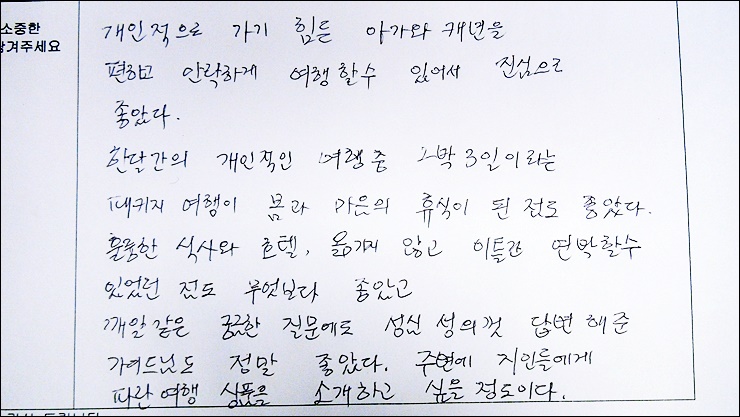 소중한
남겨주세요
개인적으로 가기 힘든 아가와 캐년을
편하고 안락하게 여행할수 있어서 진심으로
좋았다.
한달간의 개인적인 여행중 2박 3일이라는
패키지 여행이 몸과 마음의 휴식이 된 점도 좋았다.
훌륭한 식사와 호텔, 옮기지 않고 이틀간 연박할수
있었던 점도 무엇보다 좋았고
깨알같은 궁금한 질문에도 성심 성의껏 답변해준
가이드님도 정말 좋았다. 주변에 지인들에게
파란여행 상품을 소개하고 싶을 정도이다.